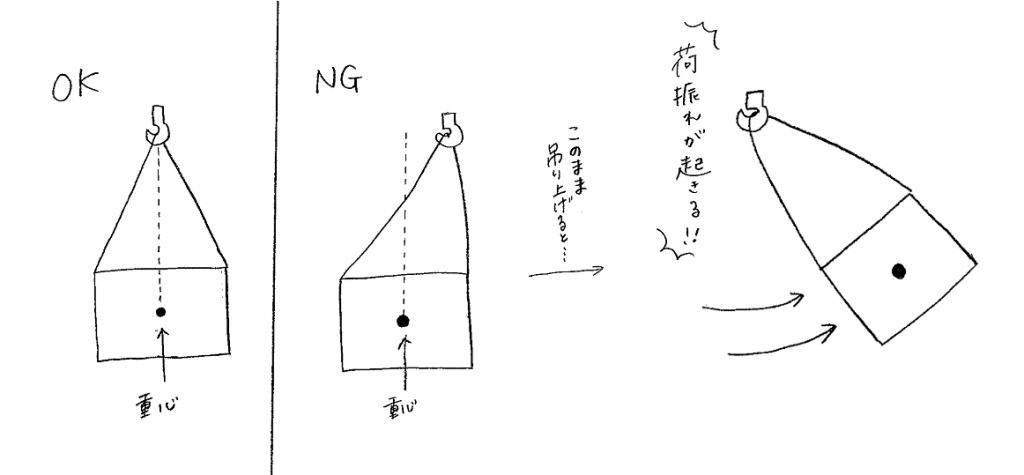 OK
重心
NG
重心
このまま
吊り上げると…
荷振れが起きる!!